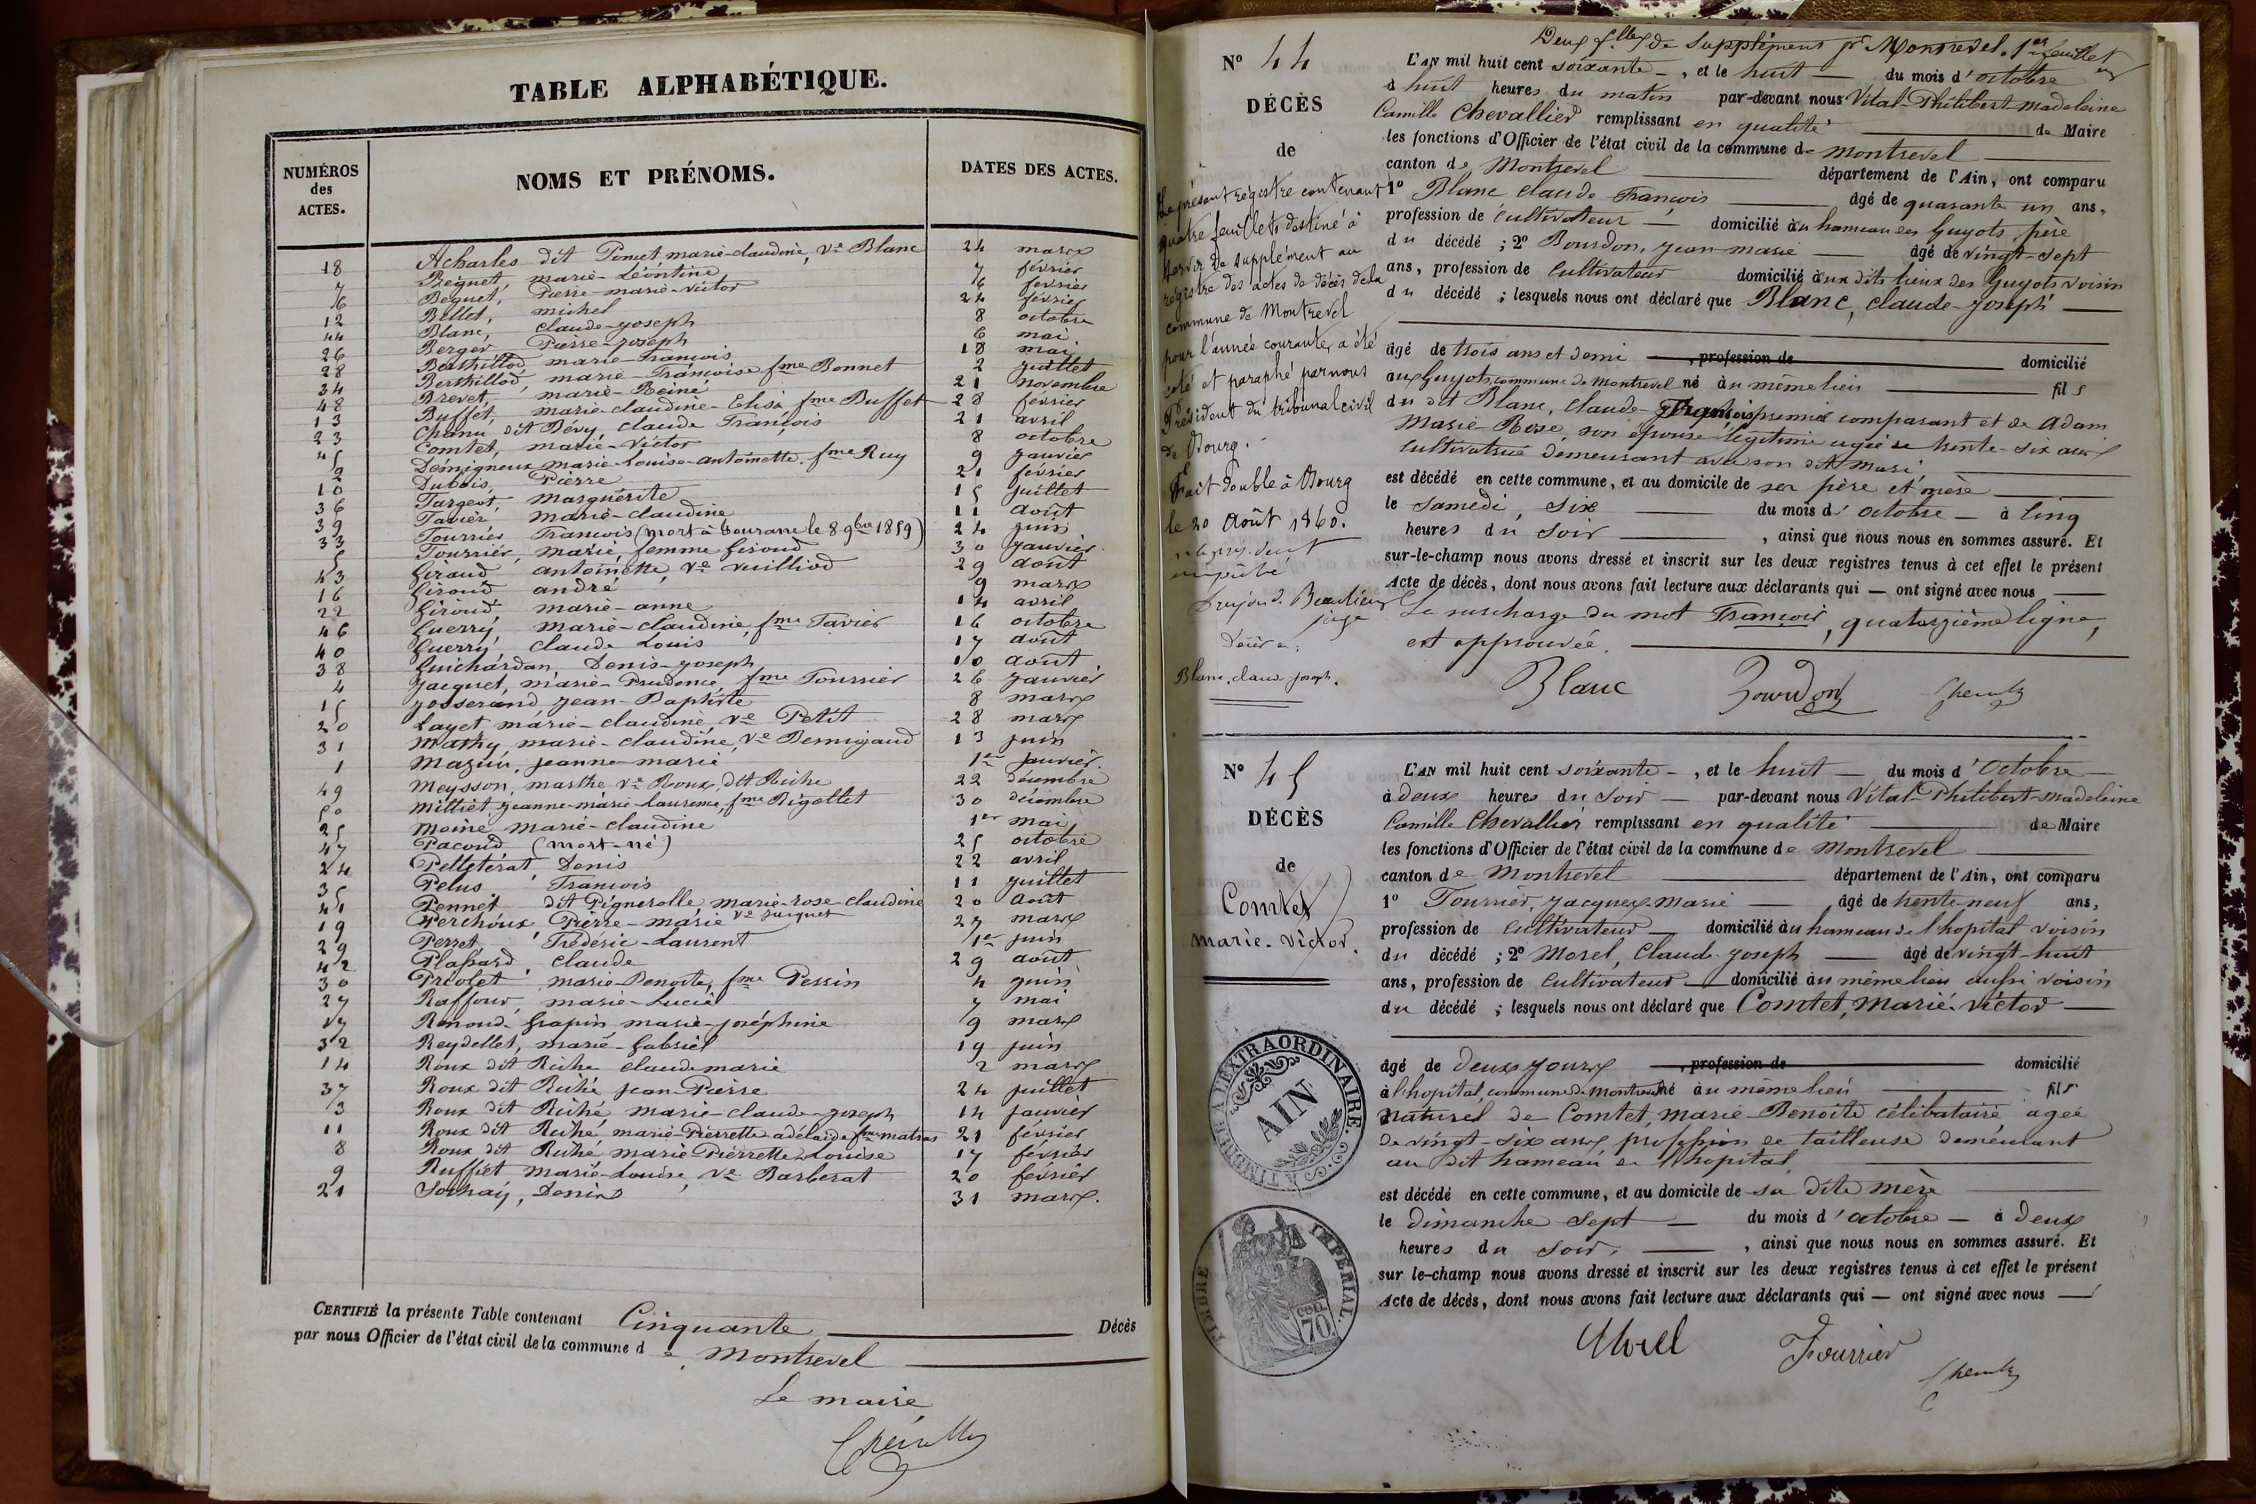 TABLE ALPHABÉTIQUE.
NUMÉROS des ACTES.
NOMS ET PRÉNOMS.
DATES DES ACTES.
18 Acharles dit Pomet marie-claudine, Ve Blanc 24 mars
7 Beignet, marie-Léontine 7 février
6 Beguet, Pierre-marie-victor 6 février
12 Billet, michel 24 février
44 Blanc, claude-joseph 8 octobre
26 Berger Pierre-Joseph 6 mai
28 Berthillod, marie-François 18 mai
34 Berthillod, marie-Françoise fme Bonnet 2 juillet
48 Brevet, marie-Reine 21 novembre
13 Buffet, marie-claudine-Elisa fme Buffet 28 février
23 Chanu dit Dévy, claude François 21 avril
45 Comtet, marie-Victor 8 octobre
2 Démigneux marie-Louise-antoinette fme Ruy 9 janvier
10 Dubois, Pierre 21 février
36 Fargeot, marguerite 15 juillet
39 Favier, marie-claudine 11 août
33 Fourrier, François (mort à Tourane le 8 9bre 1859) 24 juin
5 Fourrier, marie, femme Giroud 30 janvier
43 Giraud antoinette, Ve Vuilliod 29 août
16 Giroud andré 9 mars
22 Giroud marie-anne 14 avril
46 Guerry, marie-claudine, fme Favier 16 octobre
40 Guerry, claude Louis 17 août
38 Guichardan Denis-joseph 10 août
4 Jacquet, marie-Prudence fme Fourrier 26 janvier
15 Josserand jean-Baptiste 8 mars
20 Layet, marie-claudine Ve Petit 28 mars
31 Mathy, marie-claudine, Ve Bernigaud 13 juin
1 Mazuir, jeanne-marie 1er janvier
49 Meysson, marthe Ve Roux, dit Riche 22 décembre
50 Milliet, jeanne-marie-Laurence, fme Rigollet 30 décembre
25 Moine marie-claudine 1er mai
47 Pacoud (mort-né) 25 octobre
24 Pelletérat, Denis 22 avril
35 Pelus François 11 juillet
41 Pennet dit Pignerolle marie-rose-claudine Ve Jacquet 20 août
19 Perchoux, Pierre-marie 27 mars
29 Perret, Fréderic-Laurent 1er juin
42 Plassard claude 29 août
30 Préolet marie-Benoite, fme Pessin 4 juin
27 Raffour marie-Lucie 7 mai
17 Renoud-Grapin marie-joséphine 9 mars
32 Reydellet, marie-Gabriel 19 juin
14 Roux dit Riche claude marie 2 mars
37 Roux dit Riche jean-Pierre 24 juillet
3 Roux dit Riche marie-claude-joseph 14 janvier
11 Roux dit Riche marie-Pierrette-adélaide fme matras 21 février
8 Roux dit Riche marie-Pierrette-Louise 17 février
9 Ruffiet marie-Louise, Ve Barberat 20 février
21 Sochay, Denis 31 mars.
CERTIFIÉ la présente Table contenant Cinquante Décès
par nous Officier de l'état civil de la commune de Montrevel
Le maire
Deux flles de supplément pr Montrevel. 1er feuillet
N° 44
DÉCÈS
de
Le présent registre contenant
quatre feuillets destiné à
servir de supplément au
registre des actes de décès de la
commune de Montrevel
pour l'année courante, a été
coté et paraphé par nous
Président du tribunal civil
de Bourg.
Fait double à Bourg
le 20 Août 1860.
empêché
juge
Blanc, claude joseph.
L'AN mil huit cent soixante, et le huit du mois d'octobre
à huit heures du matin par-devant nous Vital-Philibert madeleine
Camille Chevallier remplissant en qualité de Maire
les fonctions d'Officier de l'état civil de la commune de Montrevel
canton de Montrevel département de l'Ain, ont comparu
1° Blanc claude François âgé de quarante un ans,
profession de cultivateur domicilié au hameau des Guyots, père
du décédé; 2° Bourdon, jean-marie âgé de vingt-sept
ans, profession de cultivateur domicilié aux dits lieux des Guyots voisin
du décédé; lesquels nous ont déclaré que Blanc, claude-joseph
âgé de trois ans et demi, profession de domicilié
aux Guyots, commune de Montrevel né au même lieu fils
du dit Blanc, Claude-François premier comparant et de Adam
Marie-Rose, son épouse légitime agée de trente-six ans
cultivatrice demeurant avec son dit mari
est décédé en cette commune, et au domicile de ses père et mère
le samedi, six du mois d'octobre à cinq
heures du soir, ainsi que nous nous en sommes assuré. Et
sur-le-champ nous avons dressé et inscrit sur les deux registres tenus à cet effet le présent
Acte de décès, dont nous avons fait lecture aux déclarants qui — ont signé avec nous
La surcharge du mot François, quatorzième ligne,
est approuvée.
Blanc Bourdon
N° 45
DÉCÈS
de
Comtet
Marie-Victor.
L'AN mil huit cent soixante, et le huit du mois d'Octobre
à deux heures du soir par-devant nous Vital-Philibert-Madeleine
Camille Chevallier remplissant en qualité de Maire
les fonctions d'Officier de l'état civil de la commune de Montrevel
canton de Montrevel département de l'Ain, ont comparu
1° Fourrier, jacques-marie âgé de trente-neuf ans,
profession de cultivateur domicilié au hameau de l'hopital voisin
du décédé; 2° Morel, Claude-joseph âgé de vingt-huit
ans, profession de cultivateur domicilié au même lieu aussi voisin
du décédé; lesquels nous ont déclaré que Comtet, Marie-Victor
âgé de deux jours, profession de domicilié
à l'hopital, commune de Montrevel né au même lieu fils
naturel de Comtet, Marie-Benoite célibataire agée
de vingt-six ans, profession de tailleuse demeurant
au dit hameau de l'hopital
est décédé en cette commune, et au domicile de sa dite mère
le dimanche sept du mois d'octobre à deux
heures du soir, ainsi que nous nous en sommes assuré. Et
sur le-champ nous avons dressé et inscrit sur les deux registres tenus à cet effet le présent
Acte de décès, dont nous avons fait lecture aux déclarants qui — ont signé avec nous
Morel Fourrier
TIMBRE A L'EXTRAORDINAIRE.
AIN
TIMBRE IMPÉRIAL.
cen. 70